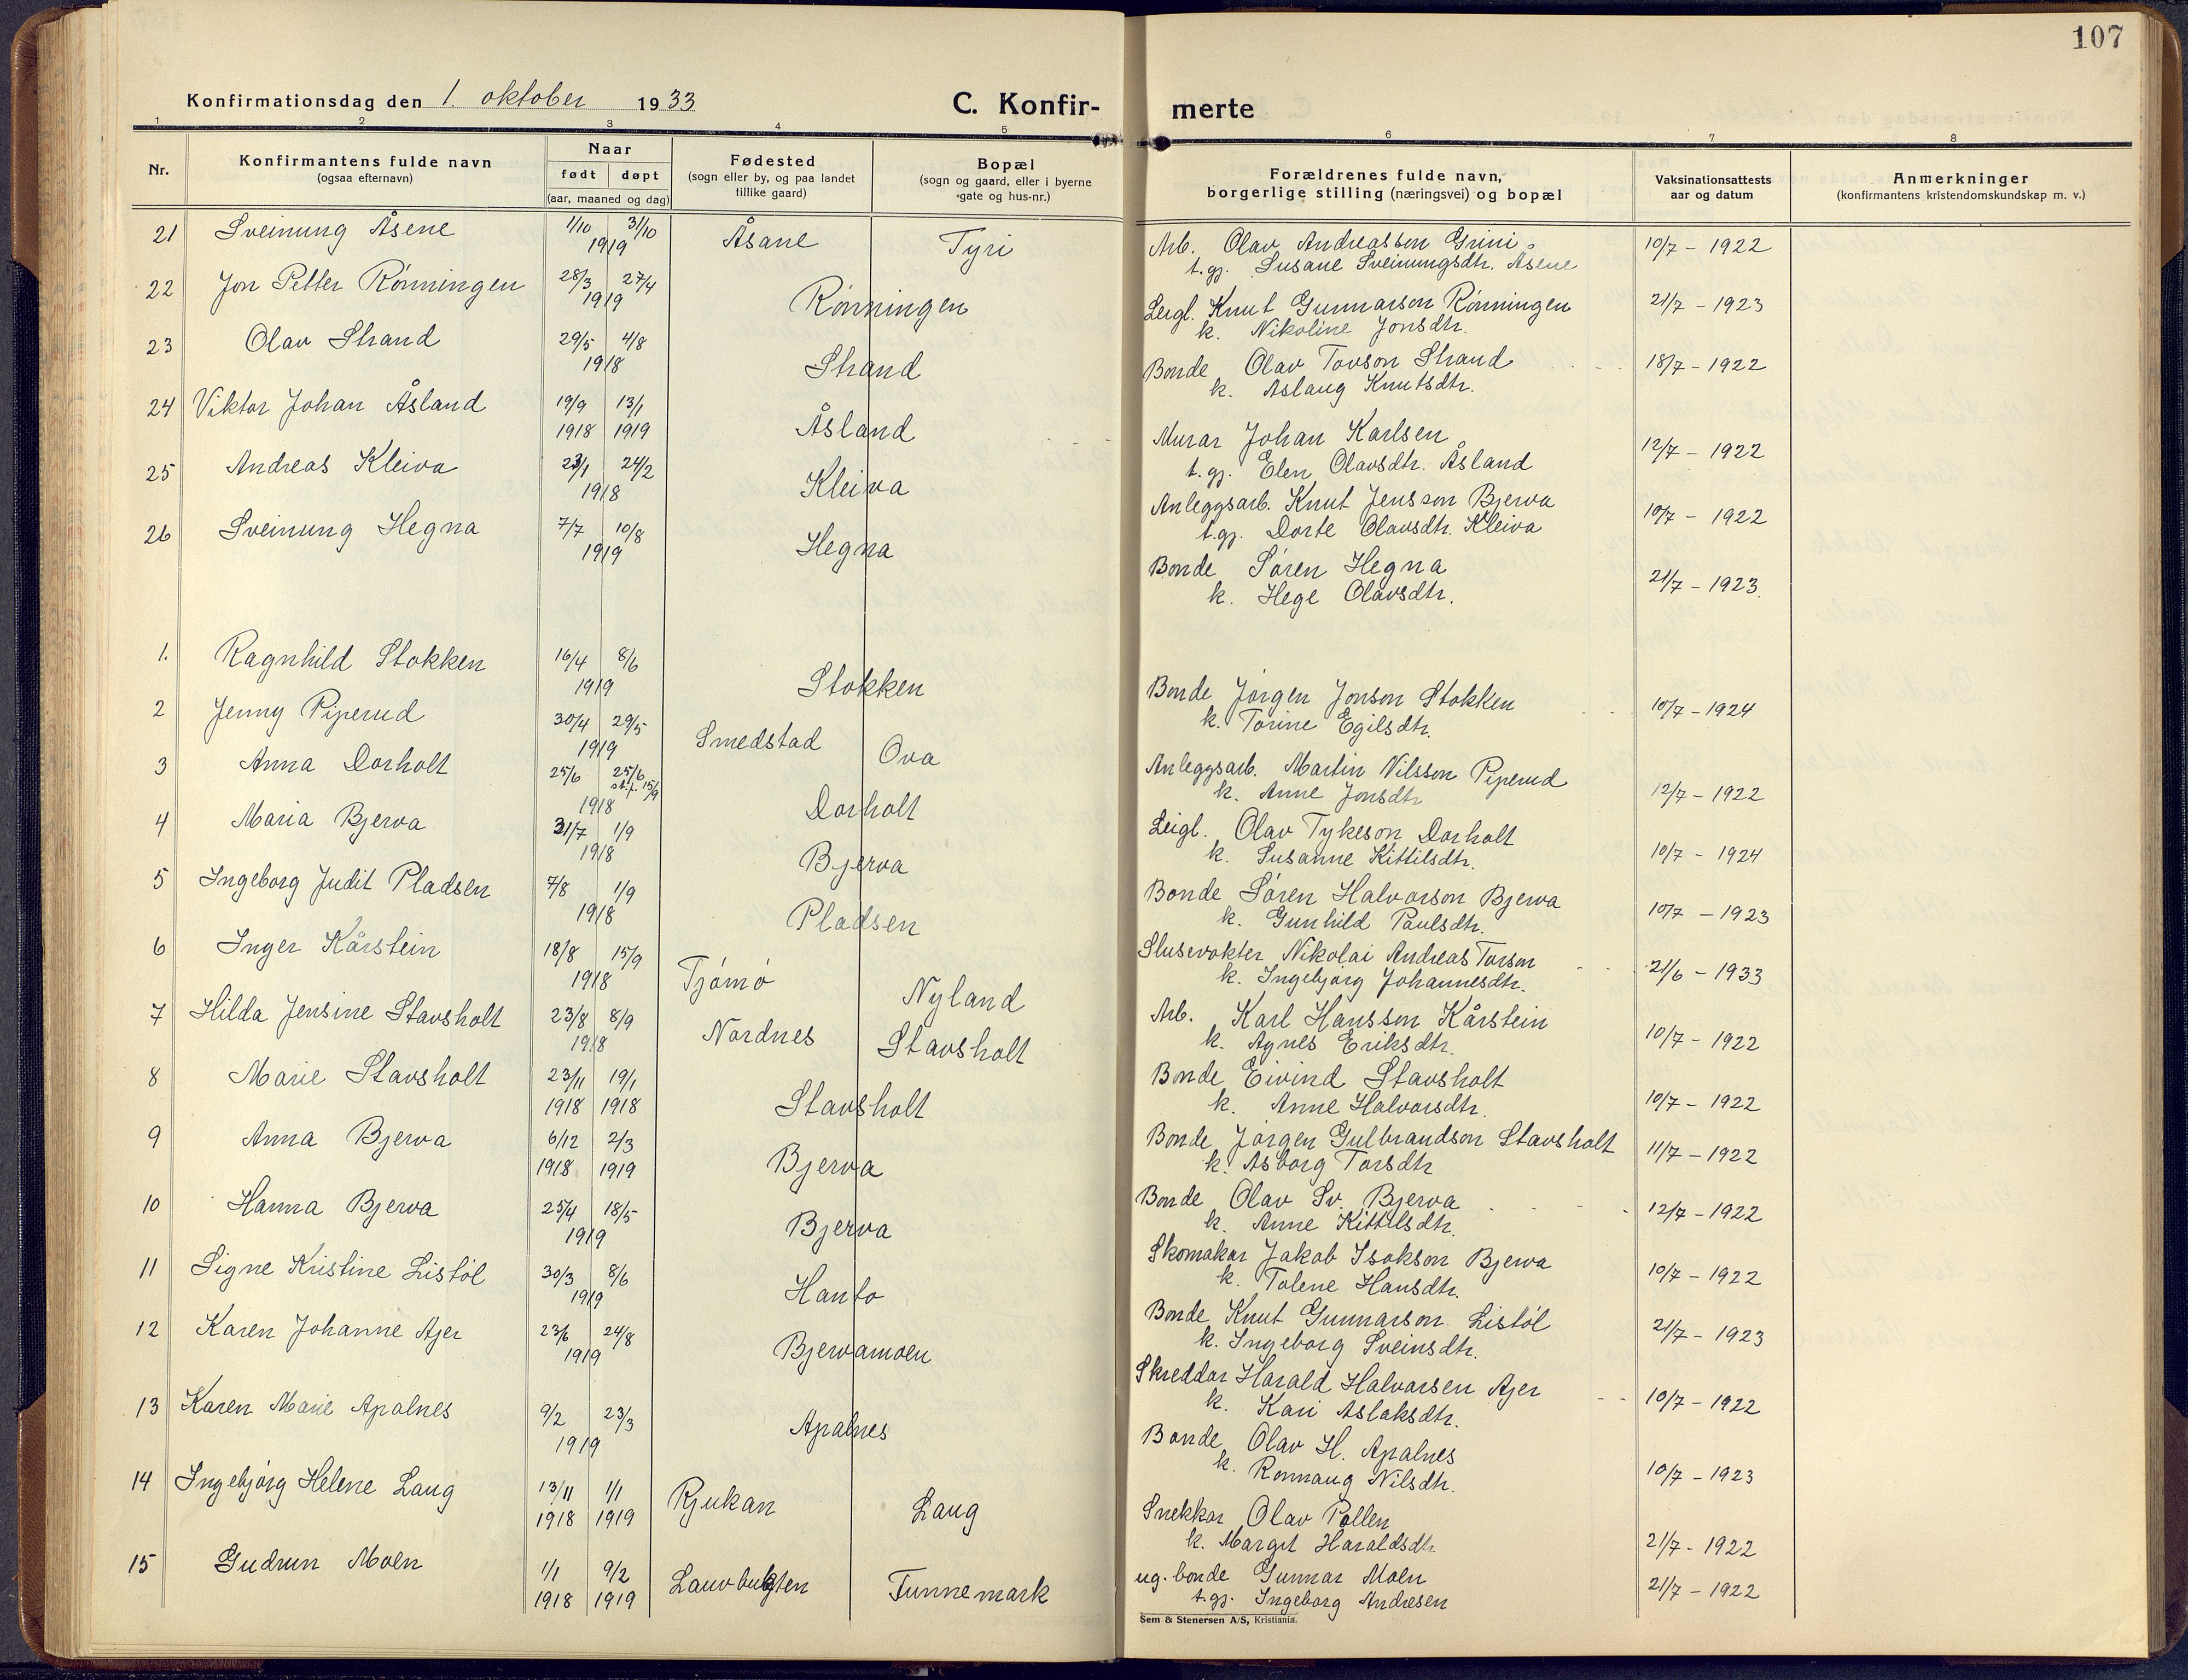 107
Konfirmationsdag den 1. oktober 1933
C. Konfir-
merte
1 2 3 4 5 6 7 8
Nr.
Konfirmantens fulde navn
(ogsaa efternavn)
Naar
født døpt
(aar, maaned og dag)
Fødested
(sogn eller by, og paa landet
tillike gaard)
Bopæl
(sogn og gaard, eller i byerne
gate og hus-nr.)
Forældrenes fulde navn,
borgerlige stilling (næringsvei) og bopæl
Vaksinationsattests
aar og datum
Anmerkninger
(konfirmantens kristendomskundskap m. v.)
21 Sveinung Åsene 1/10 31/10 1919 Åsane Tyri
Arb. Olav Andreasson Grini
t.gj. Susane Sveinungsdtr. Åsene
10/7 - 1922
22 Jon Petter Rønningen 28/3 27/4 1919 Rønningen
Leigl. Knut Gunnarson Rønningen
k. Nikoline Jonsdtr.
21/7 - 1923
23 Olav Strand 29/5 4/8 1918 Strand
Bonde Olav Tovson Strand
k. Aslaug Knutsdtr.
18/7 - 1922
24 Viktor Johan Åsland 19/9 1918 13/1 1919 Åsland
Murar Johan Karlsen
t.gj. Elen Olavsdtr. Åsland
12/7 - 1922
25 Andreas Kleiva 23/1 24/2 1918 Kleiva
Anleggsarb. Knut Jensson Bjerva
t.gj. Dorte Olavsdtr. Kleiva
10/7 - 1922
26 Sveinung Hegna 7/7 10/8 1919 Hegna
Bonde Søren Hegna
k. Hege Olavsdtr.
21/7 - 1923.
1. Ragnhild Stokken 16/4 8/6 1919 Stokken
Bonde Jørgen Jonson Stokken
k. Torine Egilsdtr.
10/7 - 1924
2 Jenny Piperud 30/4 29/5 1919 Smedstad Ova
Anleggsarb. Martin Nilsson Piperud
k. Anne Jonsdtr
12/7 - 1922
3 Anna Dorholt 25/6 25/6 st.f. 15/9 1918 Dorholt
Leigl. Olav Tykeson Dorholt
k. Susanne Kittilsdtr.
10/7 - 1924
4 Maria Bjerva 31/7 1/9 1918 Bjerva
Bonde Søren Halvorson Bjerva
k. Gunhild Paulsdtr.
10/7 - 1923
5 Ingeborg Judit Pladsen 7/8 1/9 1918 Pladsen
Slusevokter Nikolai Andreas Torson
k. Ingebjørg Johannesdtr.
21/6 - 1933
6 Inger Kårstein 18/8 15/9 1918 Tjømø Nyland
Arb. Karl Hansson Kårstein
k. Agnes Eriksdtr.
10/7 - 1922
7 Hilda Jensine Stavsholt 23/8 8/9 1918 Nordnes Stavsholt
Bonde Eivind Stavsholt
k. Anne Halvorsdtr.
10/7 - 1922
8 Marie Stavsholt 23/11 1918 19/1 1918 Stavsholt
Bonde Jørgen Gulbrandson Stavsholt
k. Asborg Torsdtr
11/7 - 1922
9 Anna Bjerva 6/12 1918 2/3 1919 Bjerva
Bonde Olav Sv. Bjerva
k. Anne Kittilsdtr.
12/7 - 1922
10 Hanna Bjerva 25/4 18/5 1919 Bjerva
Skomakar Jakob Isakson Bjerva
k. Tolene Hansdtr.
10/7 - 1922
11 Signe Kristine Listøl 30/3 8/6 1919 Hanto
Bonde Knut Gunnarson Listøl
k. Ingeborg Sveinsdtr.
21/7 - 1923
12 Karen Johanne Ajer 23/6 24/8 1919 Bjervamoen
Skreddar Harald Halvorsen Ajer
k. Kari Aslaksdtr.
10/7 - 1922
13 Karen Marie Apalnes 9/2 23/3 1919 Apalnes
Bonde Olav H. Apalnes
k. Ronnaug Nilsdtr.
10/7 - 1923
14 Ingebjørg Helene Laug 13/11 1918 1/1 1919 Rjukan Laug
Snekkar Olav Pollen
k. Margit Haraldsdtr
21/7 - 1922
15 Gudrun Moen 1/1 1918 9/2 1919 Tunnemark
ug. bonde Gunnar Moen
t.gj. Ingeborg Andresen
21/7 - 1922
Sem & Stenersen A/S, Kristiania.